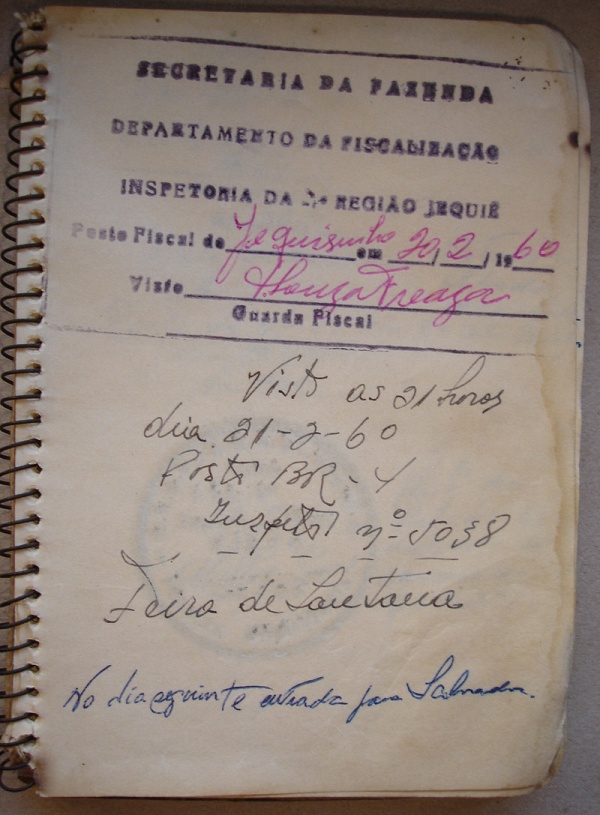 SECRETARIA DA FAZENDA
DEPARTAMENTO DA FISCALIZAÇÃO
INSPETORIA DA REGIÃO JEQUIÉ
Posto Fiscal de Jequiezinho em 20/2/1960
Visto
Guarda Fiscal
Visto as 21 horas
dia 21-2-60
Posto BR-4
Inspetor nº 5038
Feira de Santana
No dia seguinte entrada para Salvador.